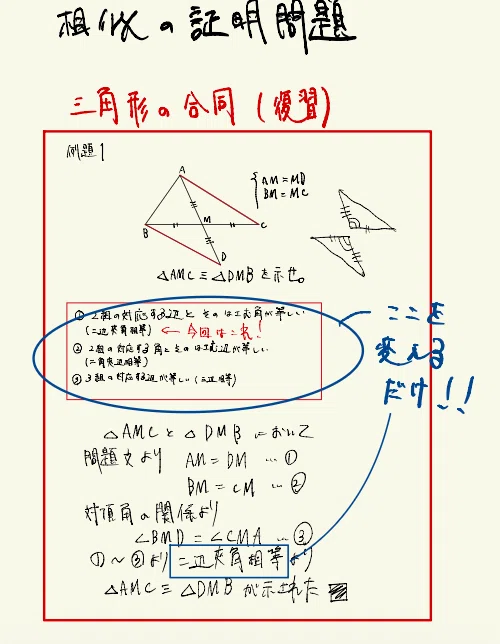 相似の証明問題
三角形の合同(復習)
例題1
A
B
M
C
D
AM=MD
BM=MC
△AMC≡△DMBを示せ。
① 2組の対応する辺とそのはさむ角が等しい
(二辺夾角相等) ← 今回はこれ!
② 2組の対応する角とそのはさむ辺が等しい
(二角夾辺相等)
③ 3組の対応する辺が等しい(三辺相等)
ここを
変える
だけ!!
△AMCと△DMBにおいて
問題文より AM=DM …①
BM=CM …②
対頂角の関係より
∠BMD=∠CMA …③
①~③より二辺夾角相等より
△AMC≡△DMBが示された